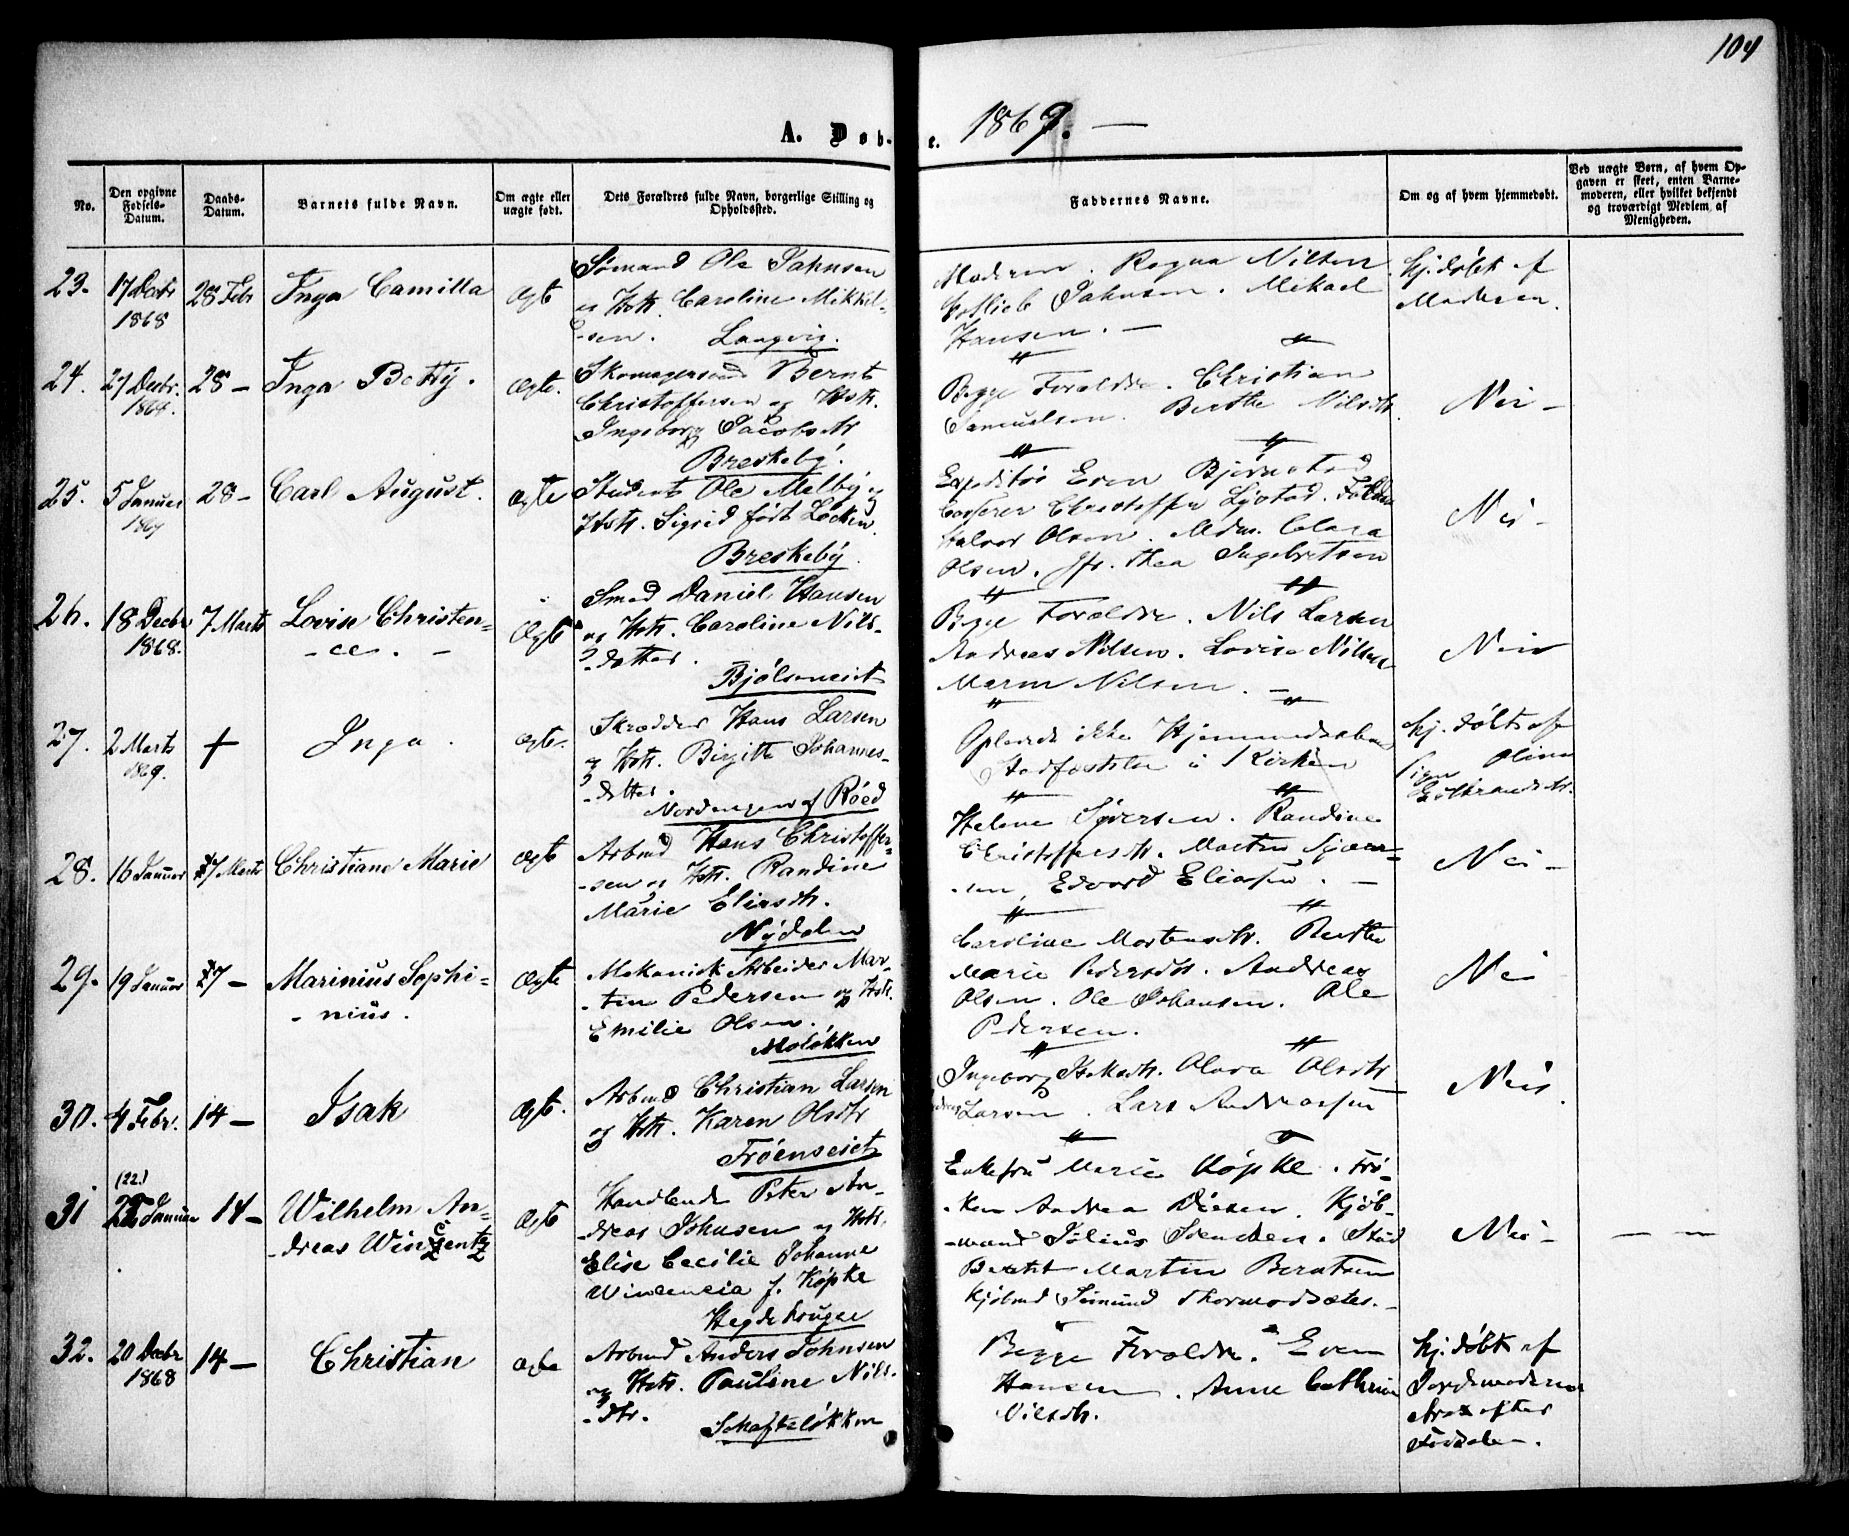 104
A. Døb-
e. 1869. —
No.
Den opgivne Fødsels-Datum.
Daabs-Datum.
Barnets fulde Navn.
Om ægte eller uægte født.
Dets Forældres fulde Navn, borgerlige Stilling og Opholdssted.
Faddernes Navne.
Om og af hvem hjemmedøbt.
Ved uægte Børn, af hvem Opgaven er skeet, enten Barnemoderen, eller hvilket bekjendt og troværdigt Medlem af Menigheden.
23. 17 Decbr 1868
28 Febr
Inga Camilla
Ægte
Sømand Ole Jahnsen
og Hstr. Caroline Mikkel-
-sen. Langvig.
Moderen. Ragna Nilsen
Gotlieb Jahnsen. Mikael
Hansen. —
Hj. døbt af
Moderen.
24. 27 Decbr.
28 —
Inga Betty.
Ægte.
Skomagersvend Bernt
Christoffersen og Hstr.
Ingeborg Jacobsdtr
Breskeby.
Begge Forældre. Christian
Samuelsen. Berthe Nilsdtr.
Nei —
25. 5 Januar
28 —
Carl August.
Ægte
Student Ole Melby og
Hstr. Sigrid født Løcken.
Breskeby.
Expeditør Even Bjørnstad
Christoffer Lystad.
Halvor Olsen. Mdm. Clara
Olsen. Jfr. Thea Ingebretsen
Nei —
26. 18 Decbr 1868.
7 Marts
Lovise Christen-
-ce. —
Ægte
Smed Daniel Hansen
og Hstr. Caroline Nils-
-datter.
Bjølseneiet
Begge Forældre. Nils Larsen
Andreas Nilsen. Lovise Nilsen
Maren Nilsen. —
Nei
27. 2 Marts 1869.
+
Inga.
Ægte.
Skrædder Hans Larsen
og Hstr. Birgitte Johannes-
-datter.
Nordengen af Røed
Oplevede ikke Hjemmedaabens
Stadfæstelse i Kirken
Hj. døbt af
Pigen Oline
Gulbrandsdtr.
28. 16 Januar
7 Marts
Christiane Marie
Ægte
Arbmd Hans Christoffer-
-sen og Hstr. Randine
Marie Eliasdtr.
Nydalen
Helene Syversen. Randine
Christoffersdtr. Morten
-sen, Edvard Eliasen. —
Nei —
29. 19 Januar
7 —
Marinius Sophi-
-nius.
Ægte
Mekanisk Arbeider Mar-
-tin Pedersen og Hstr.
Emilie Olsen.
Moløkken
Caroline Mortensdtr. Berthe
Marie Pedersdtr. Andreas
Olsen. Ole Johansen. Ole
Pedersen.
Nei
30. 4 Febr.
14 —
Isak
Ægte.
Arbmd Christian Larsen
og Hstr. Karen Olsdtr
Frøenseiet
Ingeborg Olava Olsdtr
Larsen. Lars Andreassen
Nei.
31
(22.)
22 Januar
14 —
Wilhelm An-
-dreas Wincentz
Ægte
Handlende Peter An-
-dreas Johnsen og Hstr.
Elise Cecilie Johanne
Wincencia f. Köpke
Hegdehaugen
Enkefru Marie Köpke. Frø-
-ken Andrea Diesen. Kjøb-
-mand Julius Svendsen. Stud
Martin Berntsen
Kjøbmd Simund Thormodsæter. —
Nei —
— —
32. 20 Decbr 1868
14 —
Christian
Ægte
Arbmd Anders Johnsen
og Hstr. Pauline Nils-
-dtr.
Schafteløkken
Begge Forældre. Even
Hansen. Anne Cathrine
Nilsdtr.
Hj. døbt af
Jordemoderen
strax efter
Fødselen.